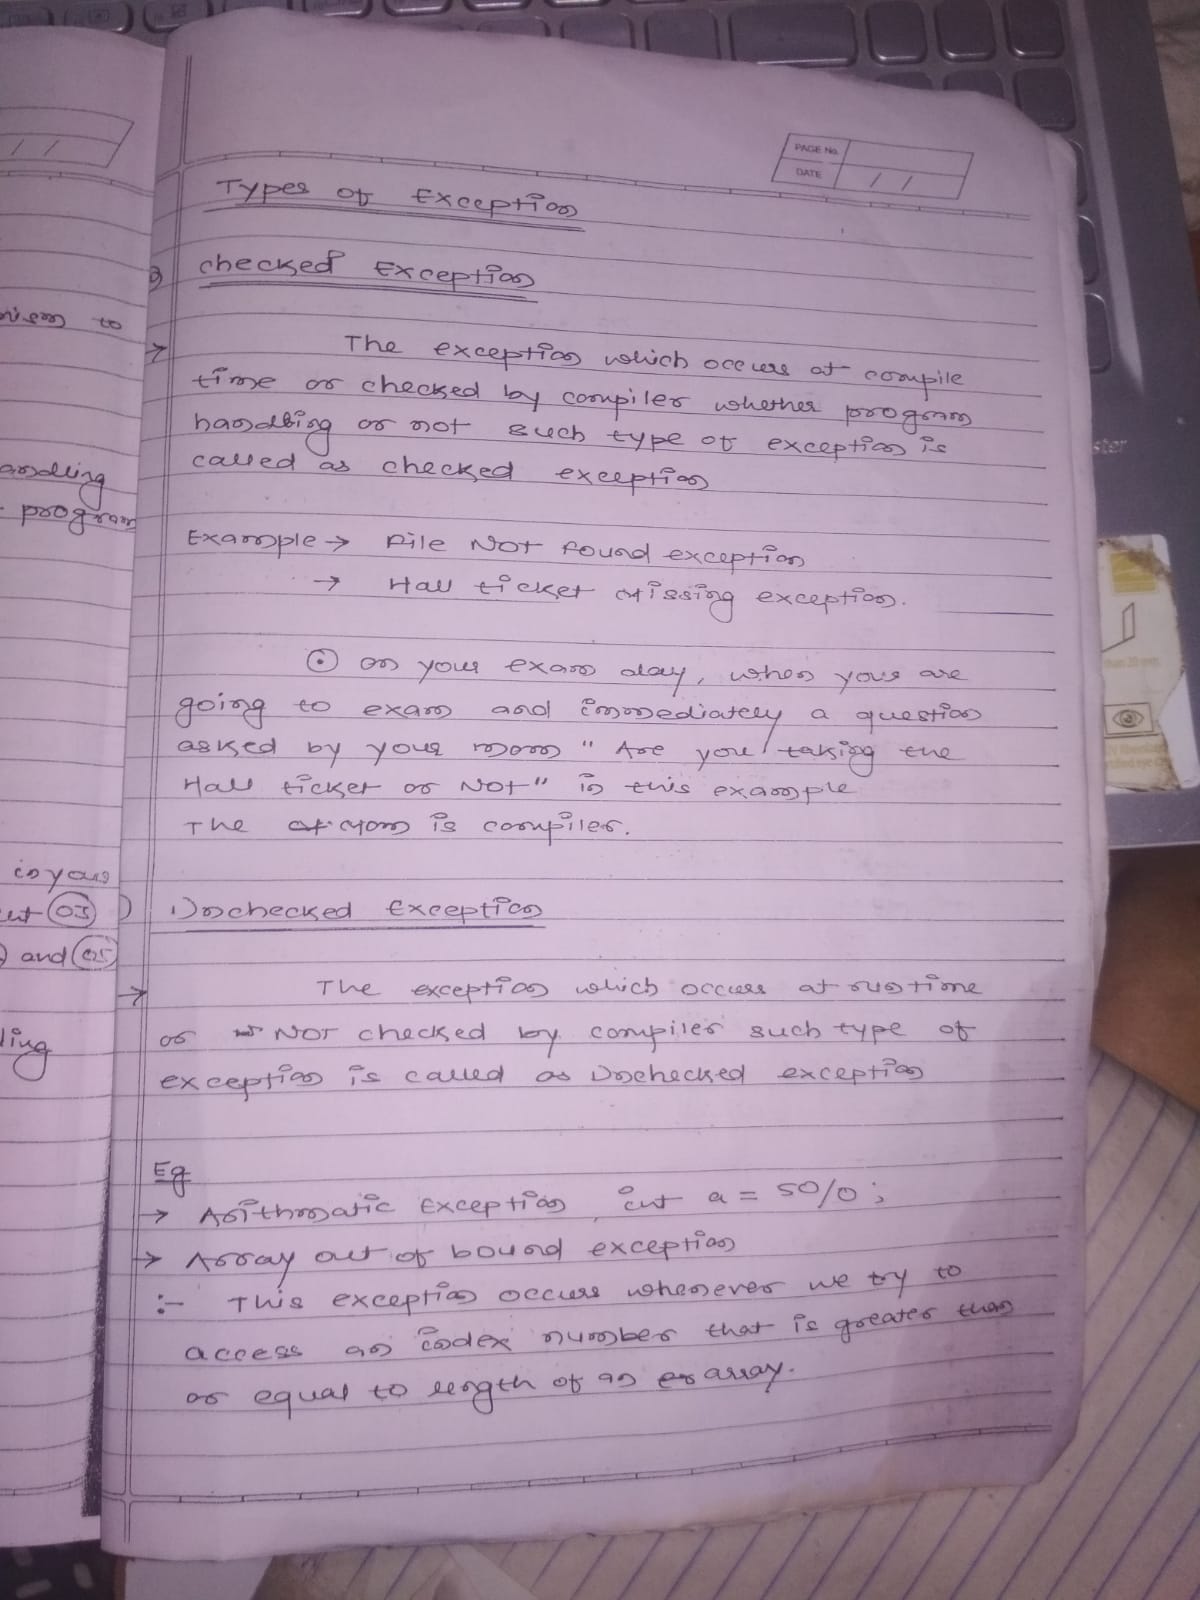 PAGE No.
DATE
/ /
/ /
Types of Exception
checked Exception
to
→ The exception which occurs at compile
time or checked by compiler whether program
handling or not such type of exception is
called as checked exception
program
Example → File Not Found exception
→ Hall ticket Missing exception.
⊙ on your exam day, when your are
going to exam and immediately a question
asked by your mom " Are you taking the
Hall ticket or Not" in this example
The Mom is compiler.
in your
03
and
Unchecked Exception
→ The exception which occurs at runtime
or NOT checked by compiler such type of
exception is called as Unchecked exception
ling
Eg
→ Arithmatic Exception, int a = 50/0;
→ Array out of bound exception
:- This exception occurs whenever we try to
access an index number that is greater than
or equal to length of an array.